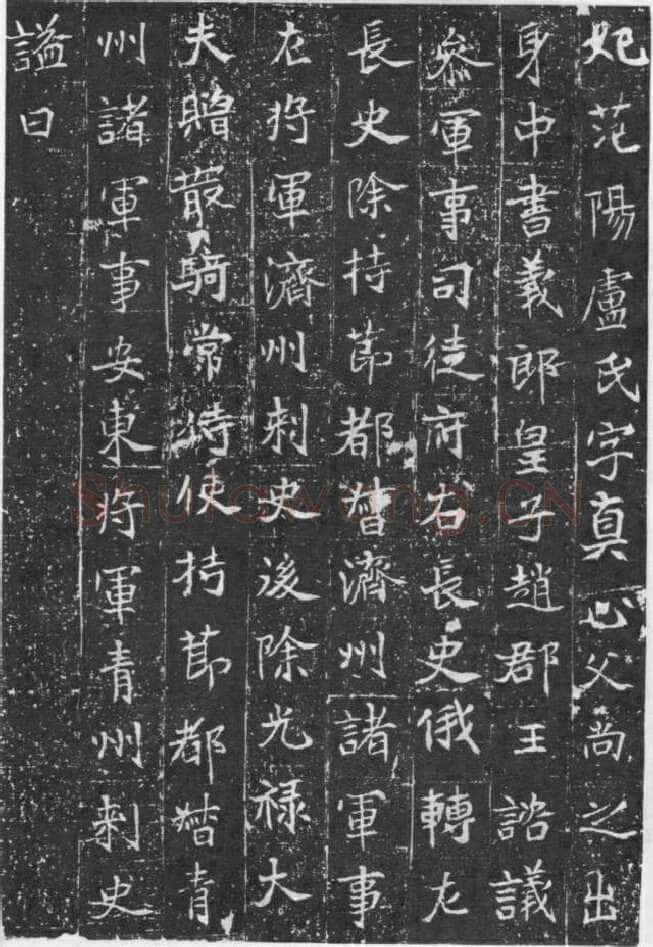 妃范陽盧氏字真心父尚之出
身中書義郎皇子趙郡王諮議
叅軍事司徒府右長史俄轉左
長史除持莭都督濟州諸軍事
左将軍濟州刺史後除光禄大
夫贈散騎常侍使持莭都督青
州諸軍事安東将軍青州刺史
謚曰
Shufawang.CN